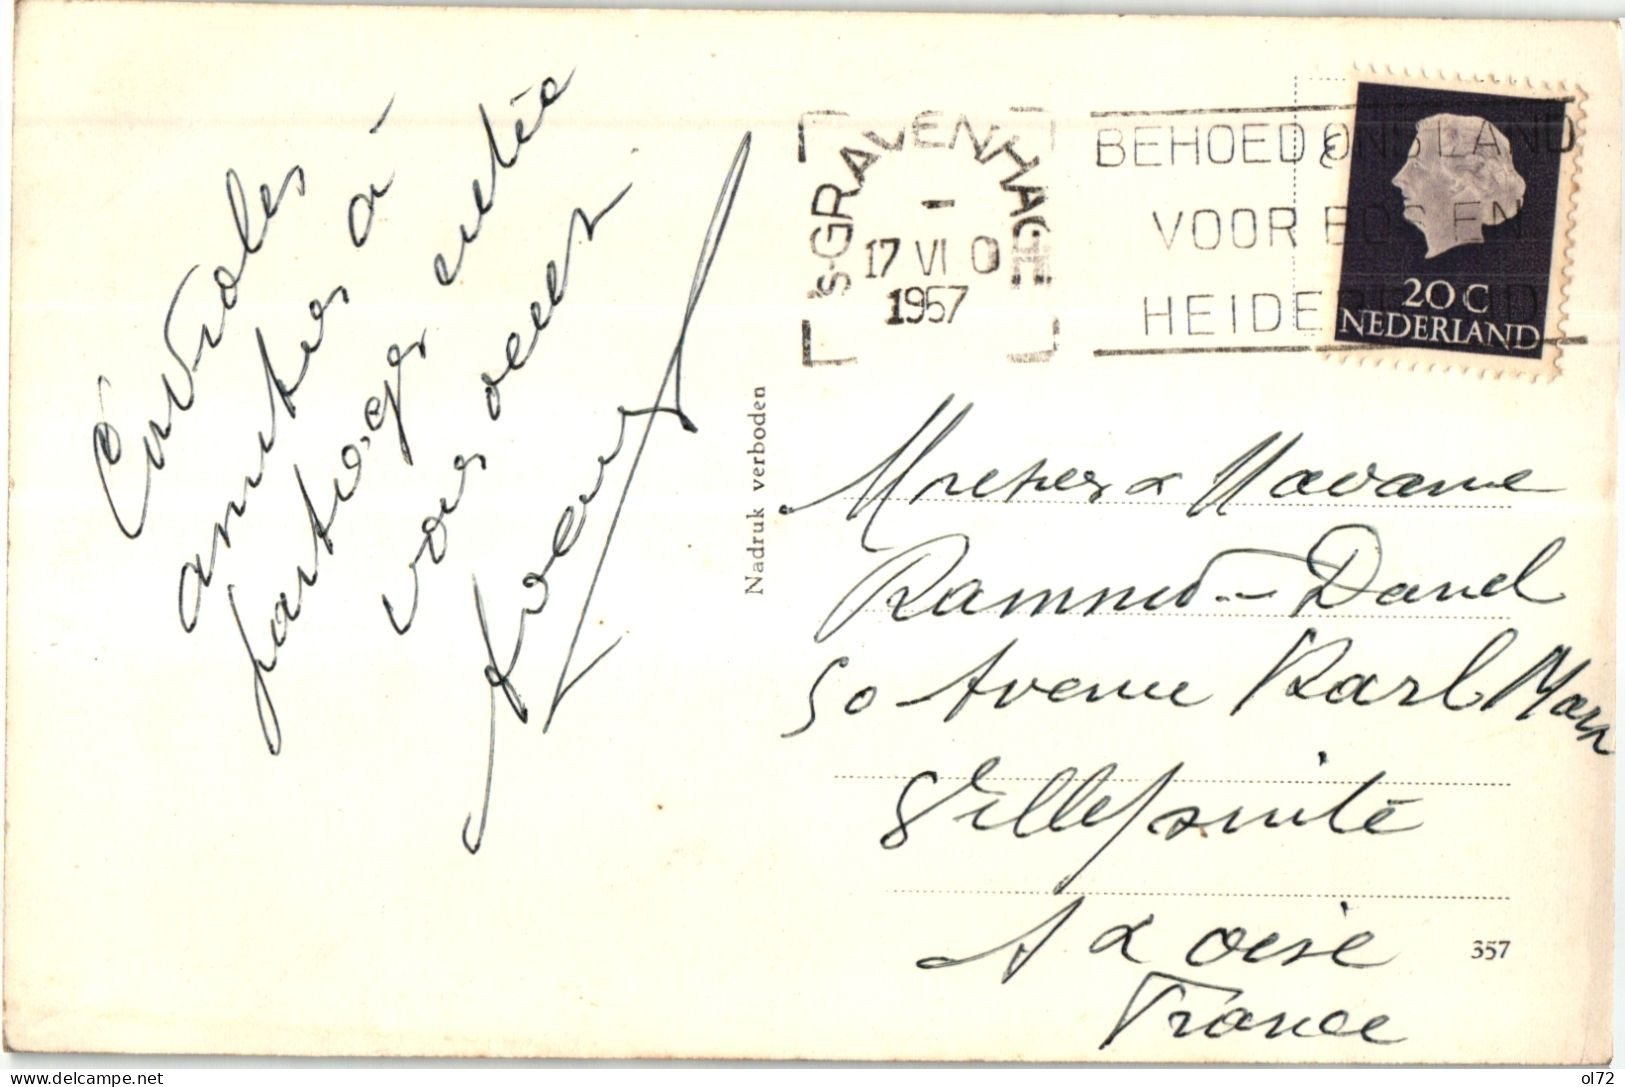 Cordiales
amitiés à
partager entre
vous deux
Nadruk verboden
'S-GRAVENHAGE
17 VI 0
1957
BEHOED ONS LAND
VOOR BOS EN
HEIDEBRAND
20 C
NEDERLAND
& Madame
Daniel
50 Avenue Karl Marx
Villejuif
S & Oise
France
357
© ol72